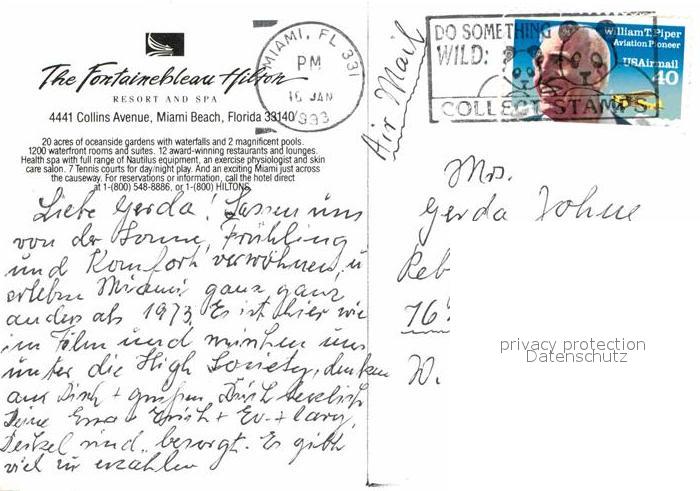 The Fontainebleau Hilton
RESORT AND SPA
4441 Collins Avenue, Miami Beach, Florida 33140
20 acres of oceanside gardens with waterfalls and 2 magnificent pools.
1200 waterfront rooms and suites. 12 award-winning restaurants and lounges.
Health spa with full range of Nautilus equipment, an exercise physiologist and skin
care salon. 7 Tennis courts for day/night play. And an exciting Miami just across
the causeway. For reservations or information, call the hotel direct
at 1-(800) 548-8886, or 1-(800) HILTONS.
MIAMI, FL 331
PM
16 JAN
1993
DO SOMETHING
WILD:
COLLECT STAMPS
William T. Piper
Aviation Pioneer
USAirmail
40
Air Mail
Liebe Gerda! Lassen uns
von der Sonne, Frühling
und Komfort verwöhnen, u
erleben Miami ganz ganz
anders als 1973. Es ist hier wie
im Film und mischen uns
unter die High Society, denken
an Dich + grüßen Dich herzlich
Deine Erna + Erich + Ev. +
sind besorgt. Es gibt
viel zu erzählen
Mrs.
Gerda
Reb
76
W.
privacy protection
Datenschutz